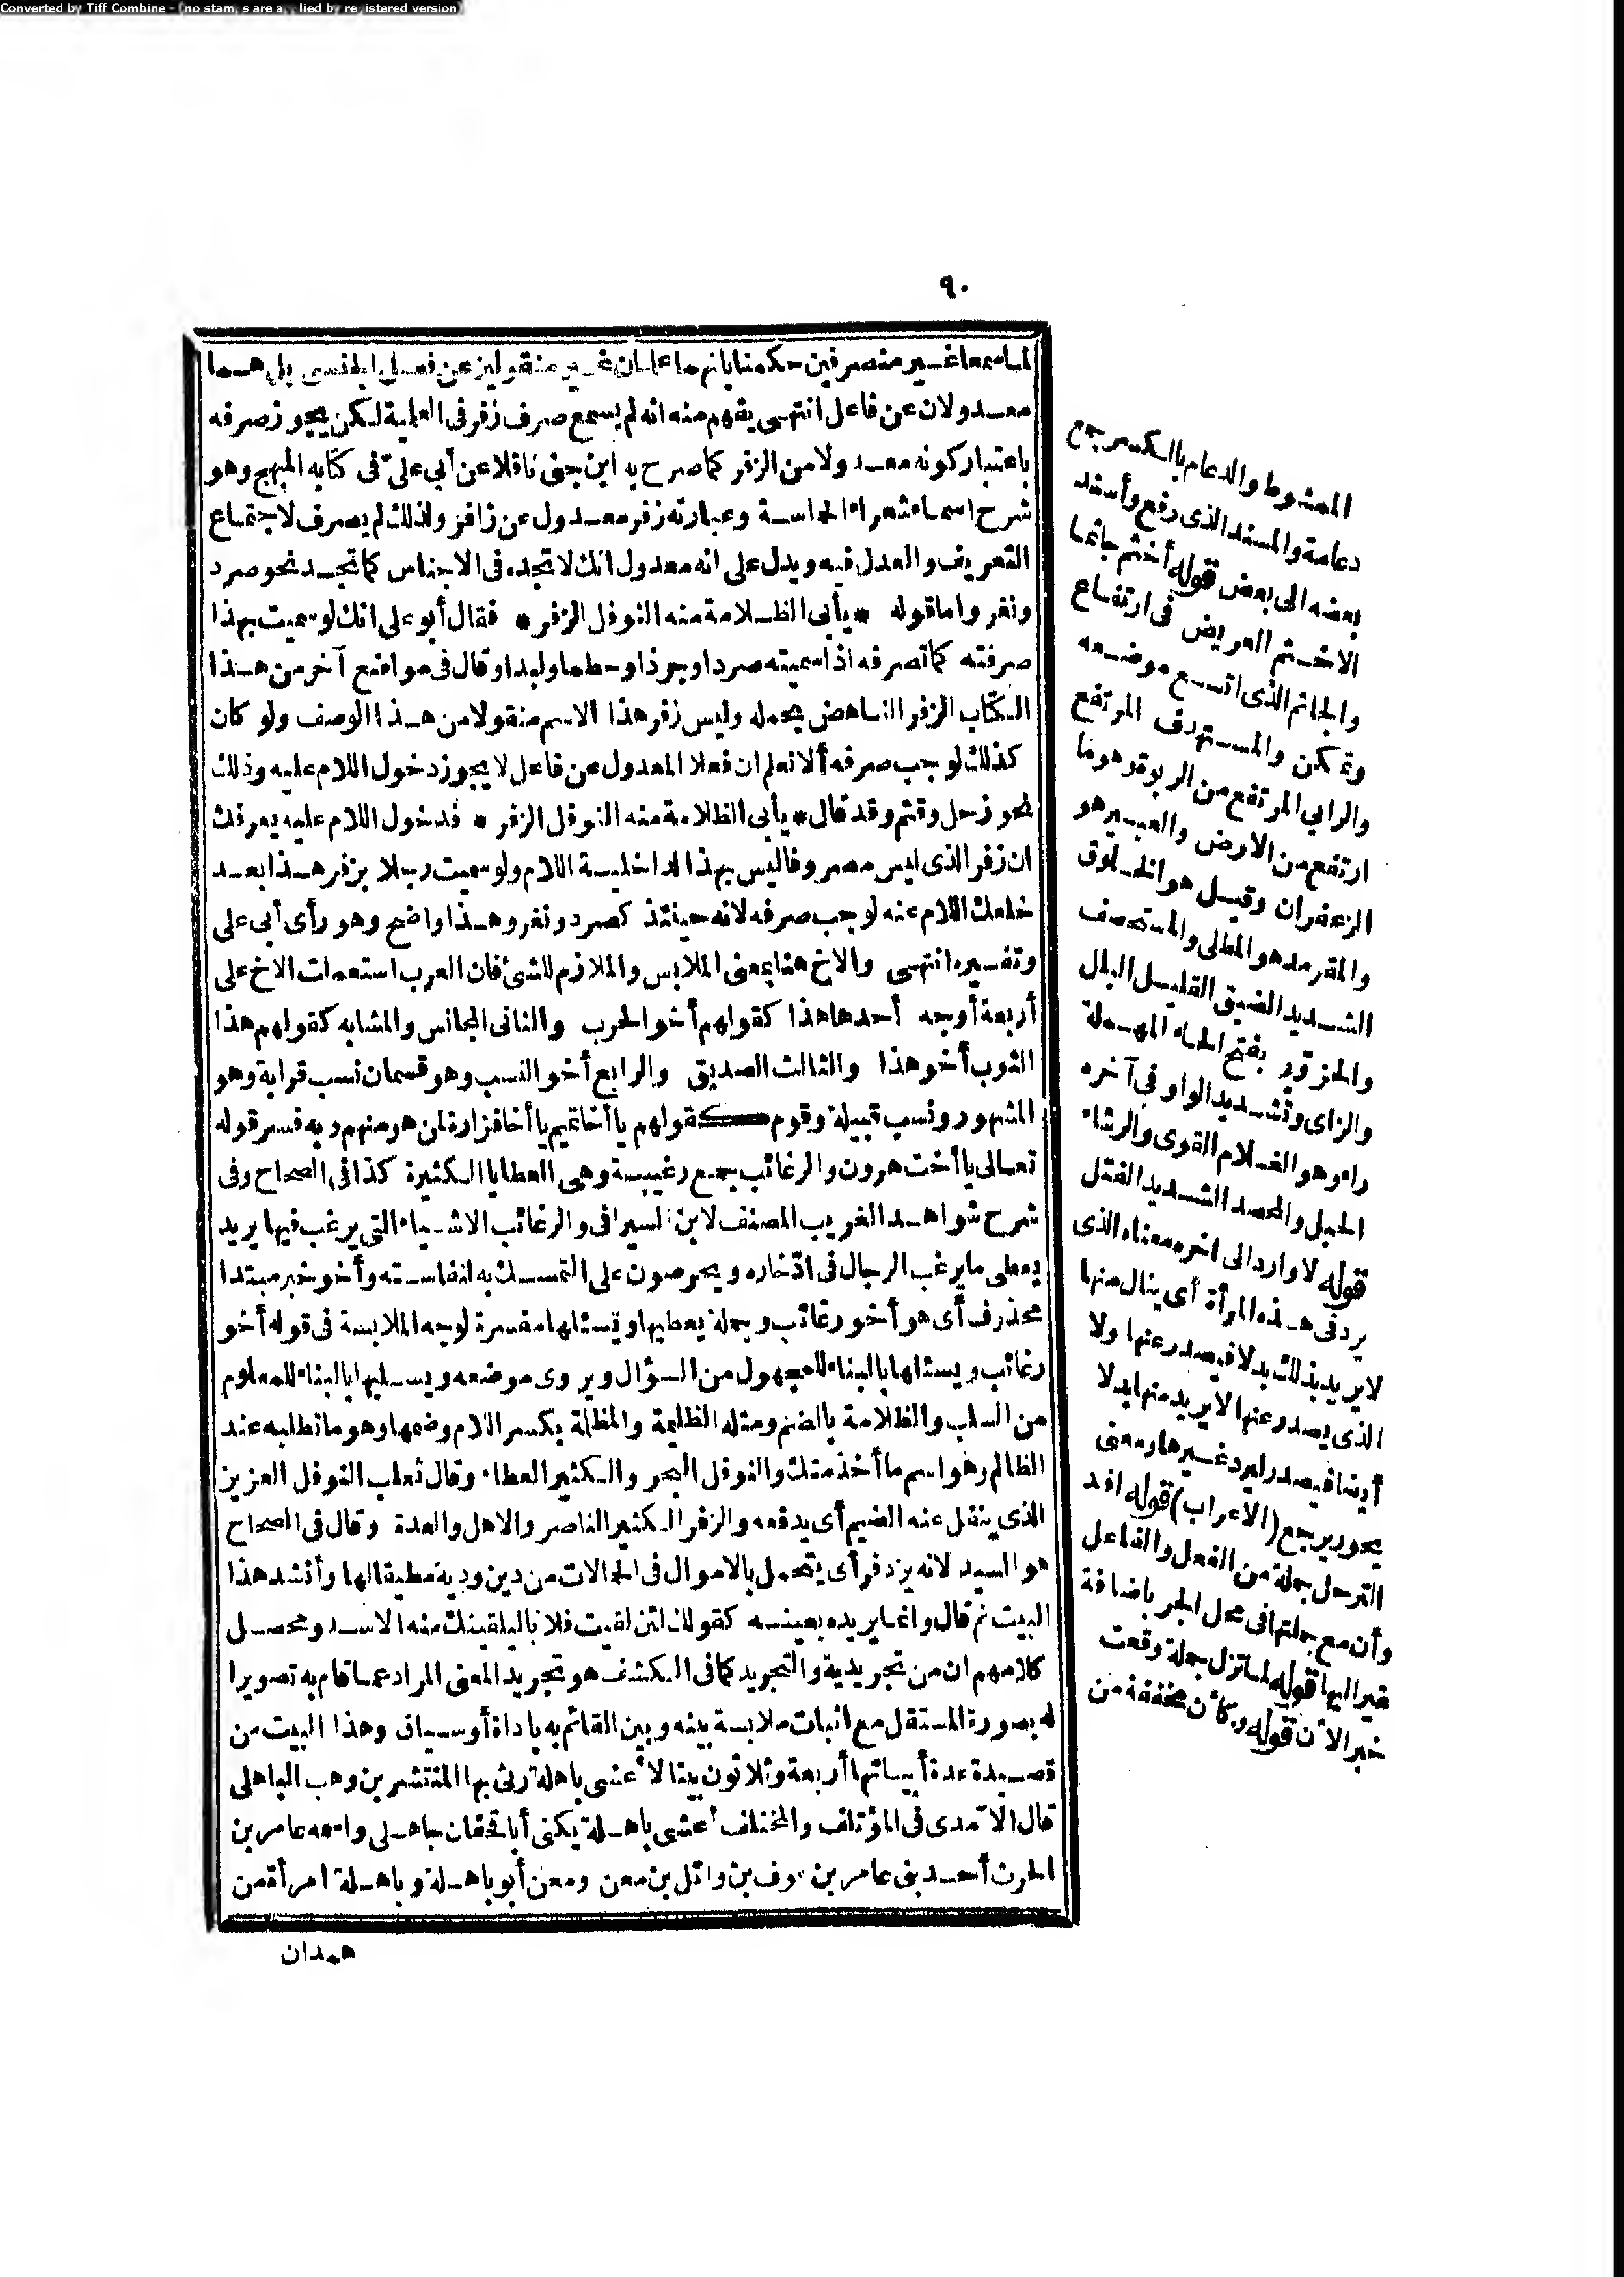 Converted by Tiff Combine - (no stamps are applied by registered version)
٩٠
لما سمعا غير منصرفين حكمنا بانهما علمان غير منقولين عن فعل الجنسى بل هما
معدولان عن فاعل انتهى يفهم منه انه لم يسمع صرف زفر فى العلمية لكن يجوز صرفه
باعتبار كونه معدولا من الزفر كما صرح به ابن جنى ناقلا عن أبى علىّ فى كتابه المبهج وهو
شرح اسماء شعراء الحماسة وعبارته زفر معدول عن زافر ولذلك لم يصرف لاجتماع
التعريف والعدل فيه ويدل على انه معدول انك لا تجده فى الاجناس كما تجد نحو صرد
ونغر واما قوله * يأبى الظلامة منه النوفل الزفر * فقال أبو على انك لو سميت بهذا
صرفته كما تصرفه اذا سميته صردا وجرذا وحطما ولبدا وقال فى مواضع آخر من هذا
الكتاب الزفر الناهض بحمله وليس زفر هذا الاسم منقولا من هذا الوصف ولو كان
كذلك لوجب صرفه ألا تعلم ان فعلا المعدول عن فاعل لا يجوز دخول اللام عليه وذلك
نحو زحل وقثم وقد قال * يأبى الظلامة منه النوفل الزفر * فدخول اللام عليه يعرفك
ان زفر الذى ليس مصروفا ليس بهذا الداخلة اللام ولو سميت رجلا بزفر هذا بعد
خلعك اللام عنه لوجب صرفه لانه حينئذ كصرد ونغر وهذا واضح وهو رأى أبى على
وتفسيره انتهى والاخ هنا بمعنى الملابس والملازم للشئ فان العرب استعملت الاخ على
أربعة أوجه أحدها هذا كقولهم أخو الحرب والثانى المجانس والمشابه كقولهم هذا
الثوب أخو هذا والثالث الصديق والرابع أخو النسب وهو قسمان نسب قرابة وهو
المشهور ونسب قبيلة وقوم كقولهم يا أخا تميم يا أخا فزارة لمن هو منهم وبه فسر قوله
تعالى يا أخت هرون والرغائب جمع رغيبة وهى العطايا الكثيرة كذا فى الصحاح وفى
شرح شواهد الغريب المصنف لابن السيرافى والرغائب الاشياء التى يرغب فيها يريد
يعطى ما يرغب الرجال فى ادّخاره ويحرصون على التمسك به لنفاسته وأخو خبر مبتدا
محذوف أى هو أخو رغائب وجملة يعطيها ويسئلها مفسرة لوجه الملابسة فى قوله أخو
رغائب ويسئلها بالبناء للمجهول من السؤال ويروى موضعه ويسلبها بالبناء للمعلوم
من السلب والظلامة بالضم ومثله الظليمة والمظلمة بكسر اللام وضمها وهو ما تطلبه عند
الظالم وهو اسم ما أخذ منك والنوفل البحر والكثير العطاء وقال ثعلب النوفل العزيز
الذى ينفل عنه الضيم أى يدفعه والزفر الكثير الناصر والاهل والعدة وقال فى الصحاح
هو السيد لانه يزدفر أى يتحمل بالاموال فى الحمالات من دين ودية مطيقا لها وأنشد هذا
البيت ثم قال وانما يريده بعينه كقولك لئن لقيت فلانا ليلقينك منه الاسد ومحصل
كلامهم ان من تجريدية والتجريد كما فى الكشف هو تجريد المعنى المراد عما قام به تصويرا
له بصورة المستقل مع اثبات ملابسة بينه وبين القائم به باداة أو سياق وهذا البيت من
قصيدة عدة أبياتها أربعة وثلاثون بيتا لاعشى باهلة رثى بها المنتشر بن وهب الباهلى
قال الآمدى فى المؤتلف والمختلف أعشى باهلة يكنى أبا قحفان جاهلى واسمه عامر بن
الحرث أحد بنى عامر بن عوف بن وائل بن معن ومعن أبو باهلة وباهلة امرأة من
همدان
الممشوط والدعام بالكسر جمع
دعامة والمسند الذى رفع وأسند
بعضه الى بعض قوله أخثم جاثما
الاخثم العريض فى ارتفاع
والجاثم الذى اتسع موضعه
وتمكن والمستهدف المرتفع
والرابى المرتفع من الربوة وهو ما
ارتفع من الارض والعبير هو
الزعفران وقيل هو الخلوق
والمقرمد هو المطلى والمستحصف
الشديد الضيق القليل البلل
والحزوّر بفتح الحاء المهملة
والزاى وتشديد الواو فى آخره
راء وهو الغلام القوى والرشاء
الحبل والمحصد الشديد الفتل
قوله لا وارد الى اخره معناه الذى
يرد فى هذه المرأة أى ينال منها
لا يريد بذلك بدلا فيصدر عنها ولا
الذى يصدر عنها لا يريد منها بدلا
أيضا فيصدر ليرد غيرها ومعنى
يحور يرجع (الاعراب) قوله افد
الترحل جملة من الفعل والفاعل
وأن مع جملتها فى محل الجر باضافة
غير اليها قوله لما تزل جملة وقعت
خبر الأن قوله وكأن مخففة من